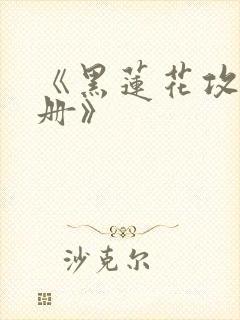 《黑蓮花攻
册》
沙克尔